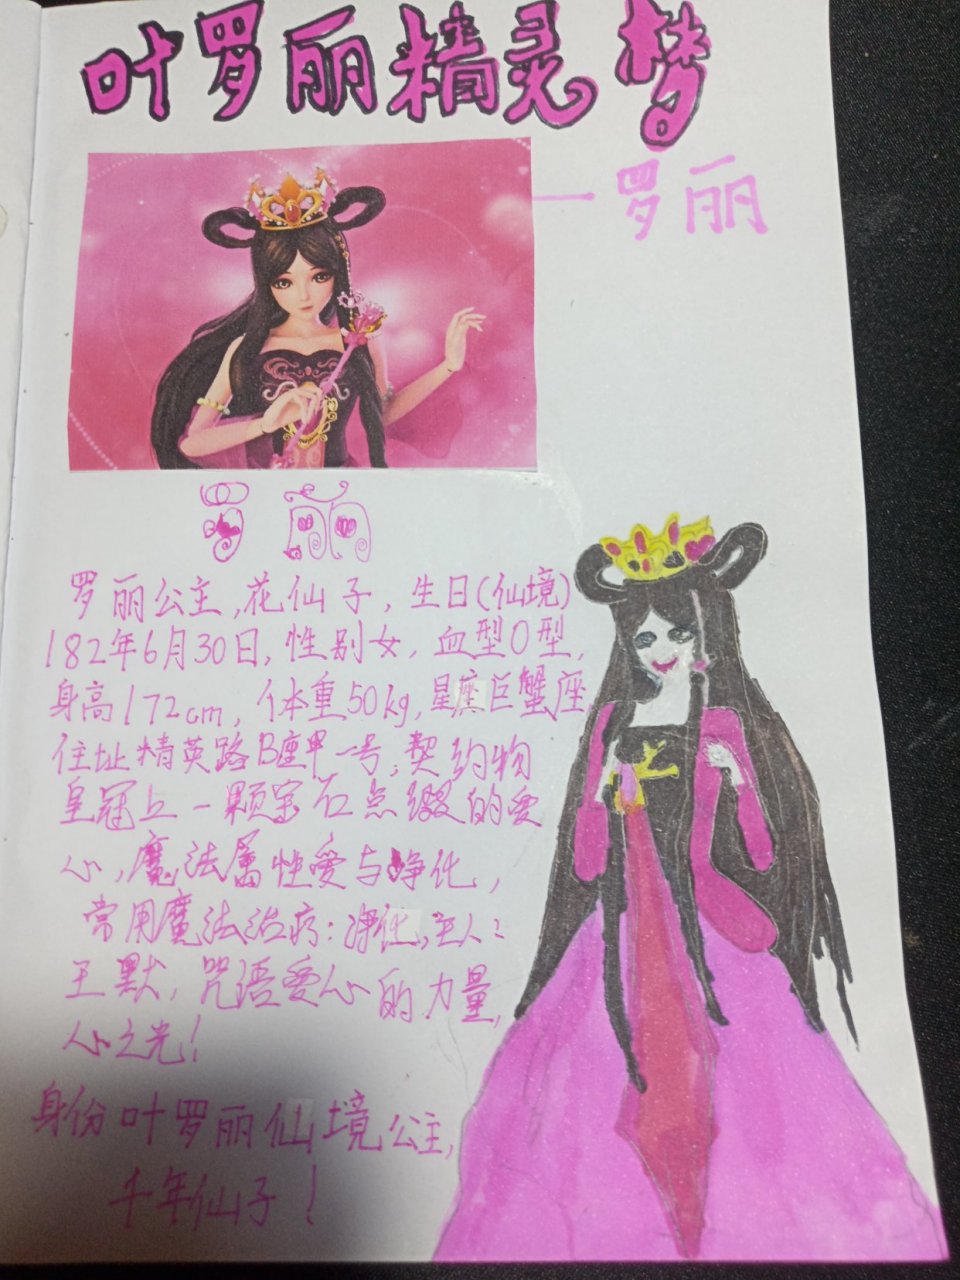 叶罗丽精灵梦
一罗丽
罗丽
罗丽公主,花仙子,生日(仙境)
182年6月30日,性别女,血型O型,
身高172cm,体重50kg,星座巨蟹座
住址精英路B座甲一号,契约物
皇冠上一颗宝石点缀的爱
心,魔法属性爱与净化,
常用魔法治疗:净化,主人:
王默,咒语爱心的力量,
心之光!
身份叶罗丽仙境公主,
千年仙子!